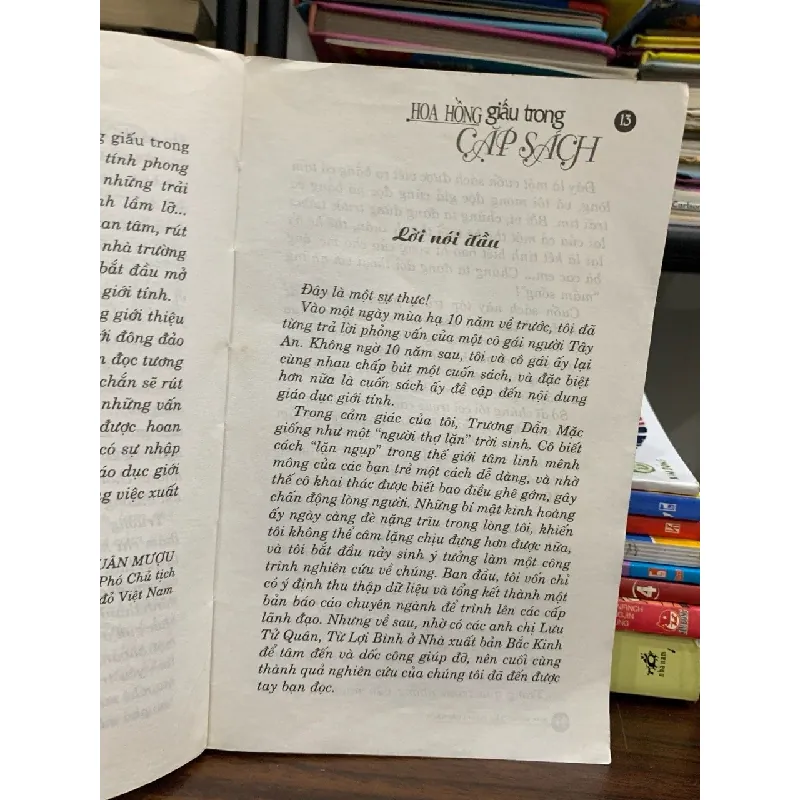 g giấu trong
tính phong
những trải
nh lầm lỡ...
an tâm, rút
nhà trường
bắt đầu mở
giới tính.
g giới thiệu
ới đông đảo
n đọc tương
chắn sẽ rút
những vấn
được hoan
có sự nhập
áo dục giới
ng việc xuất
UÂN MƯỢU
Phó Chủ tịch
đỏ Việt Nam
HOA HỒNG giấu trong
CẶP SÁCH
13
Lời nói đầu
Đây là một sự thực!
Vào một ngày mùa hạ 10 năm về trước, tôi đã
từng trả lời phỏng vấn của một cô gái người Tây
An. Không ngờ 10 năm sau, tôi và cô gái ấy lại
cùng nhau chấp bút một cuốn sách, và đặc biệt
hơn nữa là cuốn sách ấy đề cập đến nội dung
giáo dục giới tính.
Trong cảm giác của tôi, Trương Dẫn Mặc
giống như một "người thợ lặn" trời sinh. Cô biết
cách "lặn ngụp" trong thế giới tâm linh mênh
mông của các bạn trẻ một cách dễ dàng, và nhờ
thế cô khai thác được biết bao điều ghê gớm, gây
chấn động lòng người. Những bí mật kinh hoàng
ấy ngày càng đè nặng trĩu trong lòng tôi, khiến
tôi không thể câm lặng chịu đựng hơn được nữa,
và tôi bắt đầu nảy sinh ý tưởng làm một công
trình nghiên cứu về chúng. Ban đầu, tôi vốn chỉ
có ý định thu thập dữ liệu và tổng kết thành một
bản báo cáo chuyên ngành để trình lên các cấp
lãnh đạo. Nhưng về sau, nhờ có các anh chị Lưu
Tử Quán, Từ Lợi Bình ở Nhà xuất bản Bắc Kinh
để tâm đến và dốc công giúp đỡ, nên cuối cùng
thành quả nghiên cứu của chúng tôi đã đến được
tay bạn đọc.
4
nhã nam